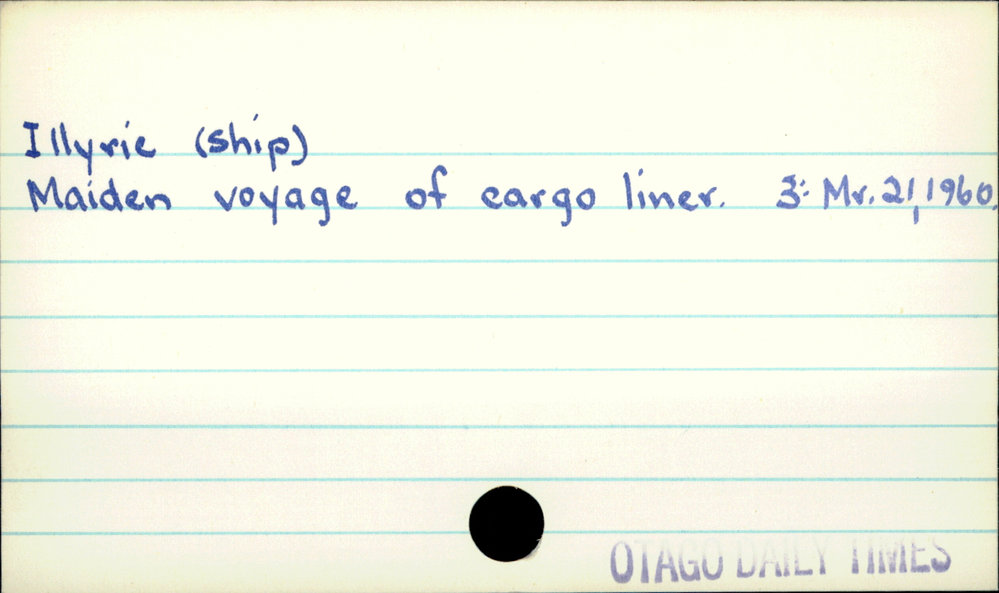 Illyric (ship)
Maiden voyage of cargo liner. 3: Mr. 21, 1960.
OTAGO DAILY TIMES